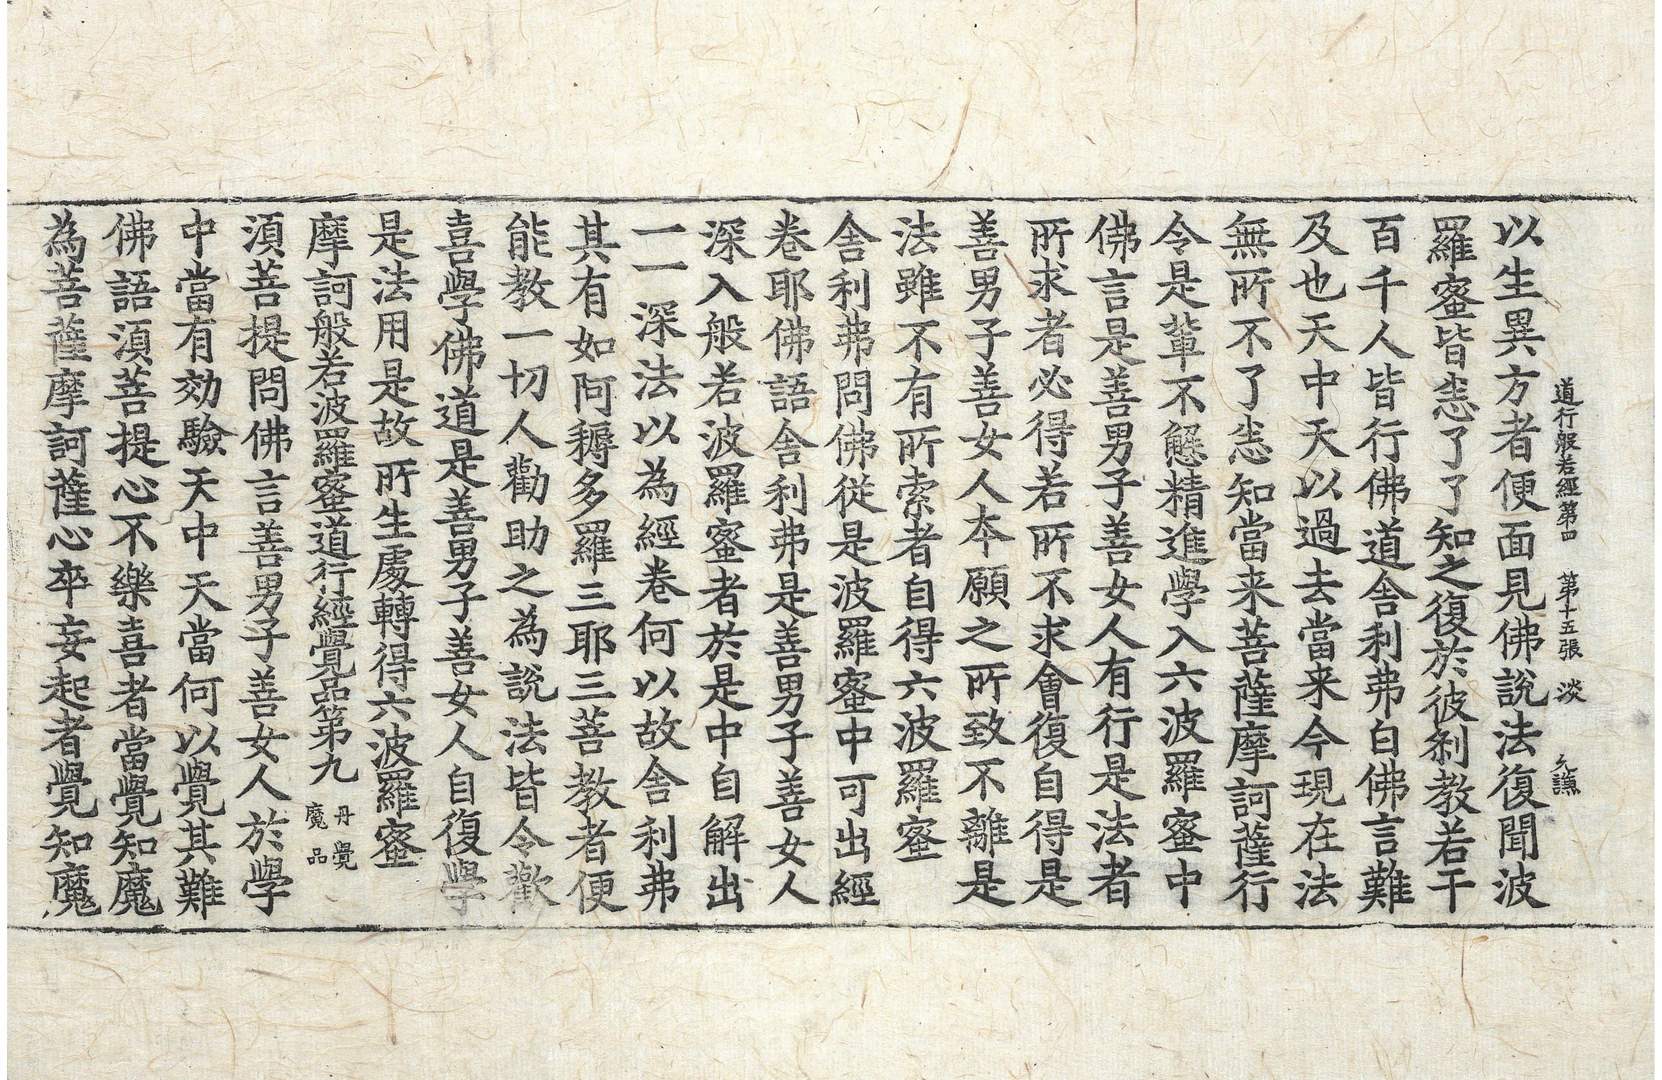 道行般若經第四 第十五張 淡
以生異方者便面見佛說法復聞波
羅蜜皆悉了了知之復於彼剎教若干
百千人皆行佛道舍利弗白佛言難
及也天中天以過去當来今現在法
無所不了悉知當来菩薩摩訶薩行
令是輩不懈精進學入六波羅蜜中
佛言是善男子善女人有行是法者
所求者必得若所不求會復自得是
善男子善女人本願之所致不離是
法雖不有所索者自得六波羅蜜
舍利弗問佛從是波羅蜜中可出經
卷耶佛語舍利弗是善男子善女人
深入般若波羅蜜者於是中自解出
一一深法以為經卷何以故舍利弗
其有如阿耨多羅三耶三菩教者便
能教一切人勸助之為說法皆令歡
喜學佛道是善男子善女人自復學
是法用是故所生處轉得六波羅蜜
摩訶般若波羅蜜道行經覺品第九 丹覺魔品
須菩提問佛言善男子善女人於學
中當有効驗天中天當何以覺其難
佛語須菩提心不樂喜者當覺知魔
為菩薩摩訶薩心卒妄起者覺知魔